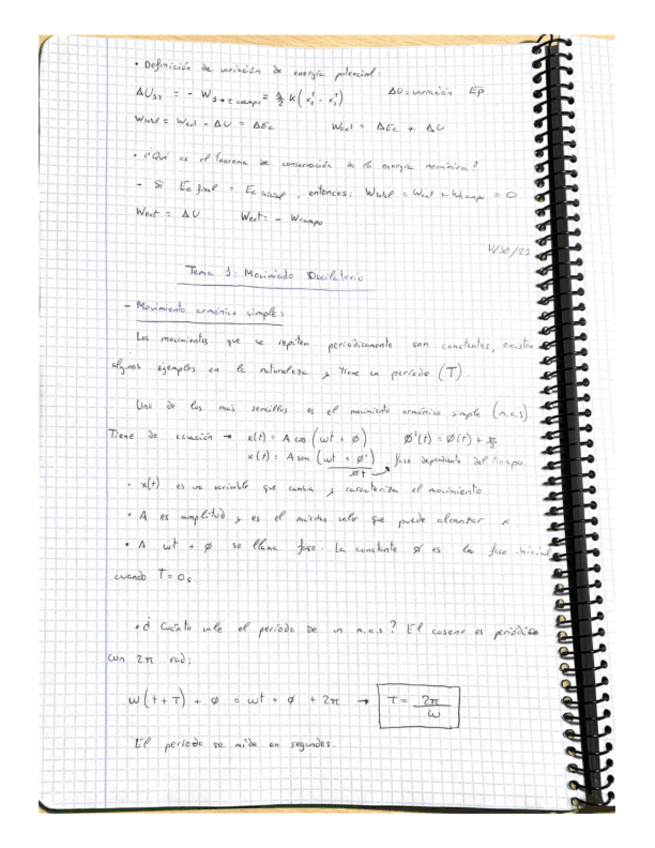 • Definición de variación de energía potencial:
ΔU₁₂ = - W₁→₂ campo = ½ k(x₂² - x₁²) ΔU = variación Ep.
Wtotal = Wext - ΔU = ΔEc Wext = ΔEc + ΔU
• ¿Qué es el teorema de conservación de la energía mecánica?
- Si Ec final = Ec inicial, entonces: Wtotal = Wext + Wcampo = 0
Wext = ΔU Wext = - Wcampo
/10/21
Tema 1: Movimiento Oscilatorio
- Movimiento armónico simple:
Los movimientos que se repiten periódicamente son constantes, existen
algunos ejemplos en la naturaleza y tiene un período (T)
Uno de los más sencillos es el movimiento armónico simple (m.a.s)
Tiene de ecuación → x(t) = A cos (ωt + ø) ø'(t) = ø(t) + π/2
x(t) = A sen (ωt + ø') fase dependiente del tiempo
øt
• x(t) es una variable que cambia y caracteriza el movimiento
• A es amplitud y es el máximo valor que puede alcanzar x
• A ωt + ø se llama fase. La constante ø es la fase inicial
cuando T = 0s
• ¿Cuánto vale el período de un m.a.s? El coseno es periódico
con 2π rad:
ω(t+T) + ø = ωt + ø + 2π → T = 2π/ω
El período se mide en segundos.